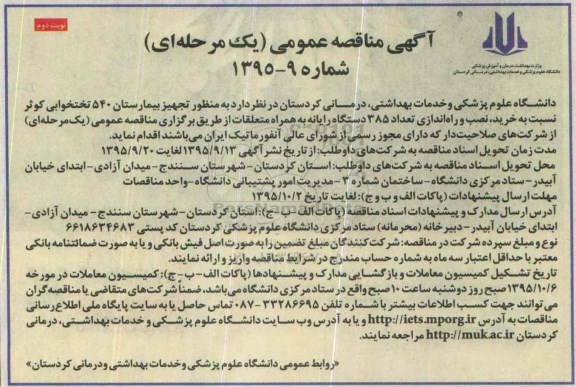 نوبت دوم
آگهی مناقصه عمومی (یک مرحله‌ای)
شماره ۹-۱۳۹۵
وزارت بهداشت، درمان و آموزش پزشکی
دانشگاه علوم پزشکی و خدمات بهداشتی، درمانی کردستان
دانشگاه علوم پزشکی وخدمات بهداشتی، درمـانی کردستان در نظر دارد به منظور تجهیز بیمارستان ۵۴۰ تختخوابی کوثر
نسبت به خرید، نصب و راه‌اندازی تعداد ۳۸۵ دستگاه رایانه به همراه متعلقات از طریق برگزاری مناقصه عمومی (یک‌مرحله‌ای)
از شرکت‌های صلاحیت‌دار که دارای مجوز رسمی از شورای عالی انفورماتیک ایران می‌باشند اقدام نماید.
مدت زمان تحویل اسناد مناقصه به شرکت‌های داوطلب: از تاریخ نشر آگهی ۱۳۹۵/۹/۱۳ لغایت ۱۳۹۵/۹/۲۰
محل تحویل اسناد مناقصه به شرکت‌های داوطلب: استان کردستان - شهرستان سنندج - میدان آزادی - ابتدای خیابان
آبیدر - ستاد مرکزی دانشگاه - ساختمان شماره ۳ - مدیریت امور پشتیبانی دانشگاه - واحد مناقصات
مهلت ارسال پیشنهادات (پاکات الف و ب و ج): لغایت تاریخ ۱۳۹۵/۱۰/۲
آدرس ارسال مدارک و پیشنهادات اسناد مناقصه (پاکات الف - ب - ج): استان کردستان - شهرستان سنندج - میدان آزادی -
ابتدای خیابان آبیدر - دبیرخانه (محرمانه) ستاد مرکزی دانشگاه علوم پزشکی کردستان کد پستی ۶۶۱۸۶۳۴۶۸۳
نوع و مبلغ سپرده شرکت در مناقصه: شرکت‌کنندگان مبلغ تضمین را به صورت اصل فیش بانکی و یا به صورت ضمانتنامه بانکی
معتبر با حداقل اعتبار سه ماه به شماره حساب مندرج در شرایط مناقصه واریز و ارائه نمایند.
تاریخ تشکیل کمیسیون معاملات و بازگشایی مدارک و پیشنهادها (پاکات الف - ب - ج): کمیسیون معاملات در مورخه
۱۳۹۵/۱۰/۶ صبح روز دوشنبه ساعت ۱۰ صبح واقع در ستاد مرکزی دانشگاه می‌باشد، ضمنا شرکت‌های متقاضی یا مناقصه‌گران
می‌توانند جهت کسب اطلاعات بیشتر با شماره تلفن ۳۳۲۸۶۶۹۵-۰۸۷ تماس حاصل یا به سایت پایگاه ملی اطلاع‌رسانی
مناقصات به آدرس http://iets.mporg.ir و یا به آدرس وب سایت دانشگاه علوم پزشکی و خدمات بهداشتی، درمانی
کردستان http://muk.ac.ir مراجعه نمایند.
«روابط عمومی دانشگاه علوم پزشکی و خدمات بهداشتی و درمانی کردستان»